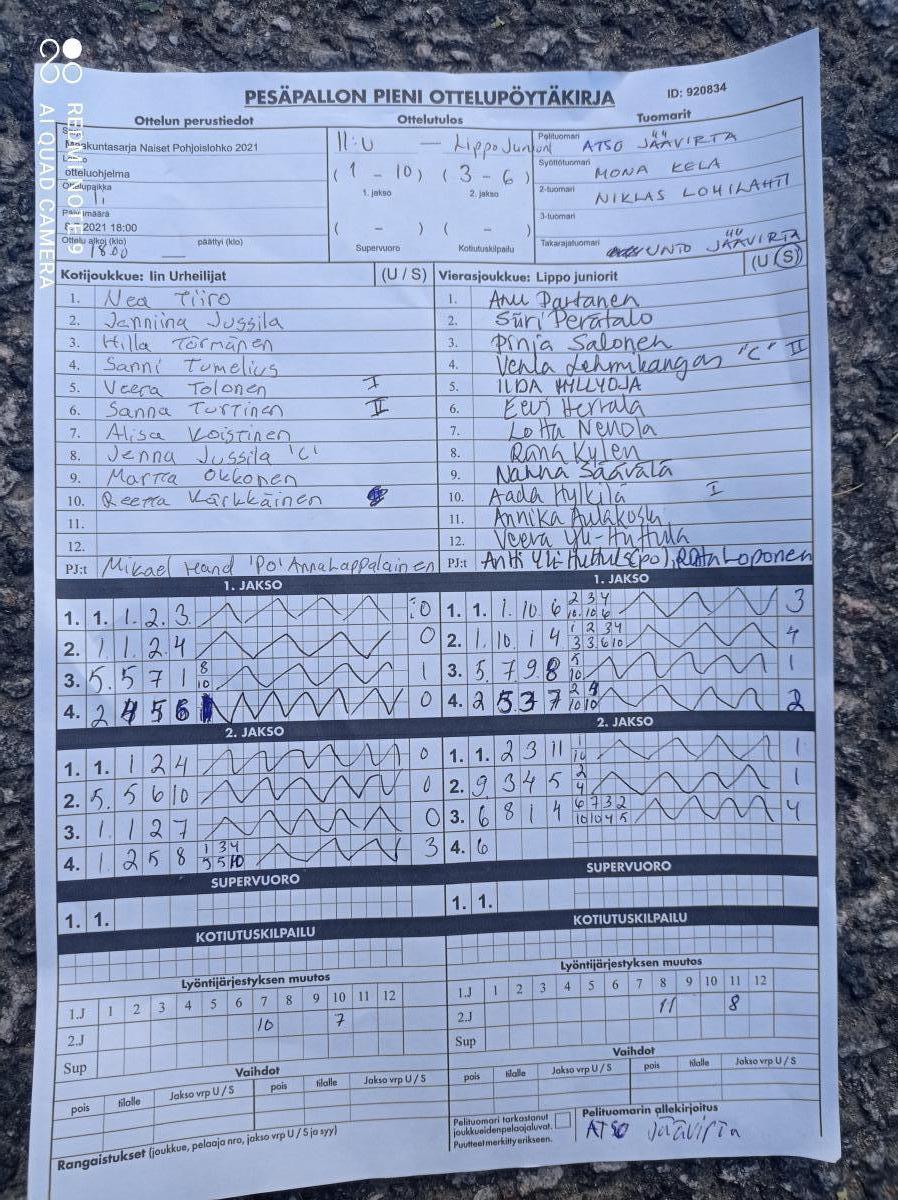 PESÄPALLON PIENI OTTELUPÖYTÄKIRJA
ID: 920834
Ottelun perustiedot
Ottelutulos
Tuomarit
Maakuntasarja Naiset Pohjoislohko 2021
otteluohjelma
Ottelupaikka
Ii
Päivämäärä
2021 18:00
Ottelu alkoi (klo) päättyi (klo)
18.00
II:U — Lippo Juniorit
( 1 - 10 ) ( 3 - 6 )
1. jakso 2. jakso
( - ) ( - )
Supervuoro Kotiutuskilpailu
Pelituomari ATSO JÄÄVIRTA
Syöttötuomari MONA KELA
2-tuomari NIKLAS LOHILAHTI
3-tuomari
Takarajatuomari UNTO JÄÄVIRTA
Kotijoukkue: Iin Urheilijat (U / S)
1. Nea Tiiro
2. Janniina Jussila
3. Hilla Törmänen
4. Sanni Tumelius
5. Veera Tolonen I
6. Sanna Turtinen II
7. Alisa Koistinen
8. Jenna Jussila 'C'
9. Martta Okkonen
10. Reetta Kärkkäinen
11.
12.
PJ:t Mikael Heand 'PO' Anna Lappalainen
Vierasjoukkue: Lippo juniorit (U / S)
1. Anu Partanen
2. Siiri Perätalo
3. Pinja Salonen
4. Venla Lehmikangas "C" II
5. IIDA HYLLYOJA
6. Eevi Herrala
7. Lotta Nenola
8. Rana Kylen
9. Nanna Säävälä
10. Aada Hylkilä I
11. Annika Aulakoski
12. Veera Yli-Huttula
PJ:t Antti Yli-Huttula (po), Riitta Loponen
1. JAKSO
1. 1. 1. 2. 3. 0
2. 1 1 2 4 0
3. 5. 5 7 1 8 10 1
4. 2 4 5 6 0
2. JAKSO
1. 1. 1 2 4 0
2. 5. 5 6 10 0
3. 1 1 2 7 0
4. 1 2 5 8 1 3 4 5 5 10 3
SUPERVUORO
1. 1.
KOTIUTUSKILPAILU
1. JAKSO
1. 1. 1. 10 6 2 3 4 10 10 6 3
2. 1. 10 1 4 1 2 3 4 3 3 6 10 4
3. 5 7 9 8 5 10 1
4. 2 5 3 7 2 9 10 10 2
2. JAKSO
1. 1. 2 3 11 1 10 1
2. 9 3 4 5 2 4 1
3. 6 8 1 4 6 7 3 2 10 10 4 5 4
4. 6
SUPERVUORO
1. 1.
KOTIUTUSKILPAILU
Lyöntijärjestyksen muutos
1.J 1 2 3 4 5 6 7 8 9 10 11 12
2.J 10 7
Sup
Vaihdot
pois tilalle Jakso vrp U / S pois tilalle Jakso vrp U / S
Rangaistukset (joukkue, pelaaja nro, jakso vrp U / S ja syy)
Lyöntijärjestyksen muutos
1.J 1 2 3 4 5 6 7 8 9 10 11 12
2.J 11 8
Sup
Vaihdot
pois tilalle Jakso vrp U / S pois tilalle Jakso vrp U / S
Pelituomari tarkastanut
joukkueiden pelaajaluvat.
Puutteet merkitty erikseen.
Pelituomarin allekirjoitus
ATSO Jäävirta
REDMI NOTE 9
AI QUAD CAMERA